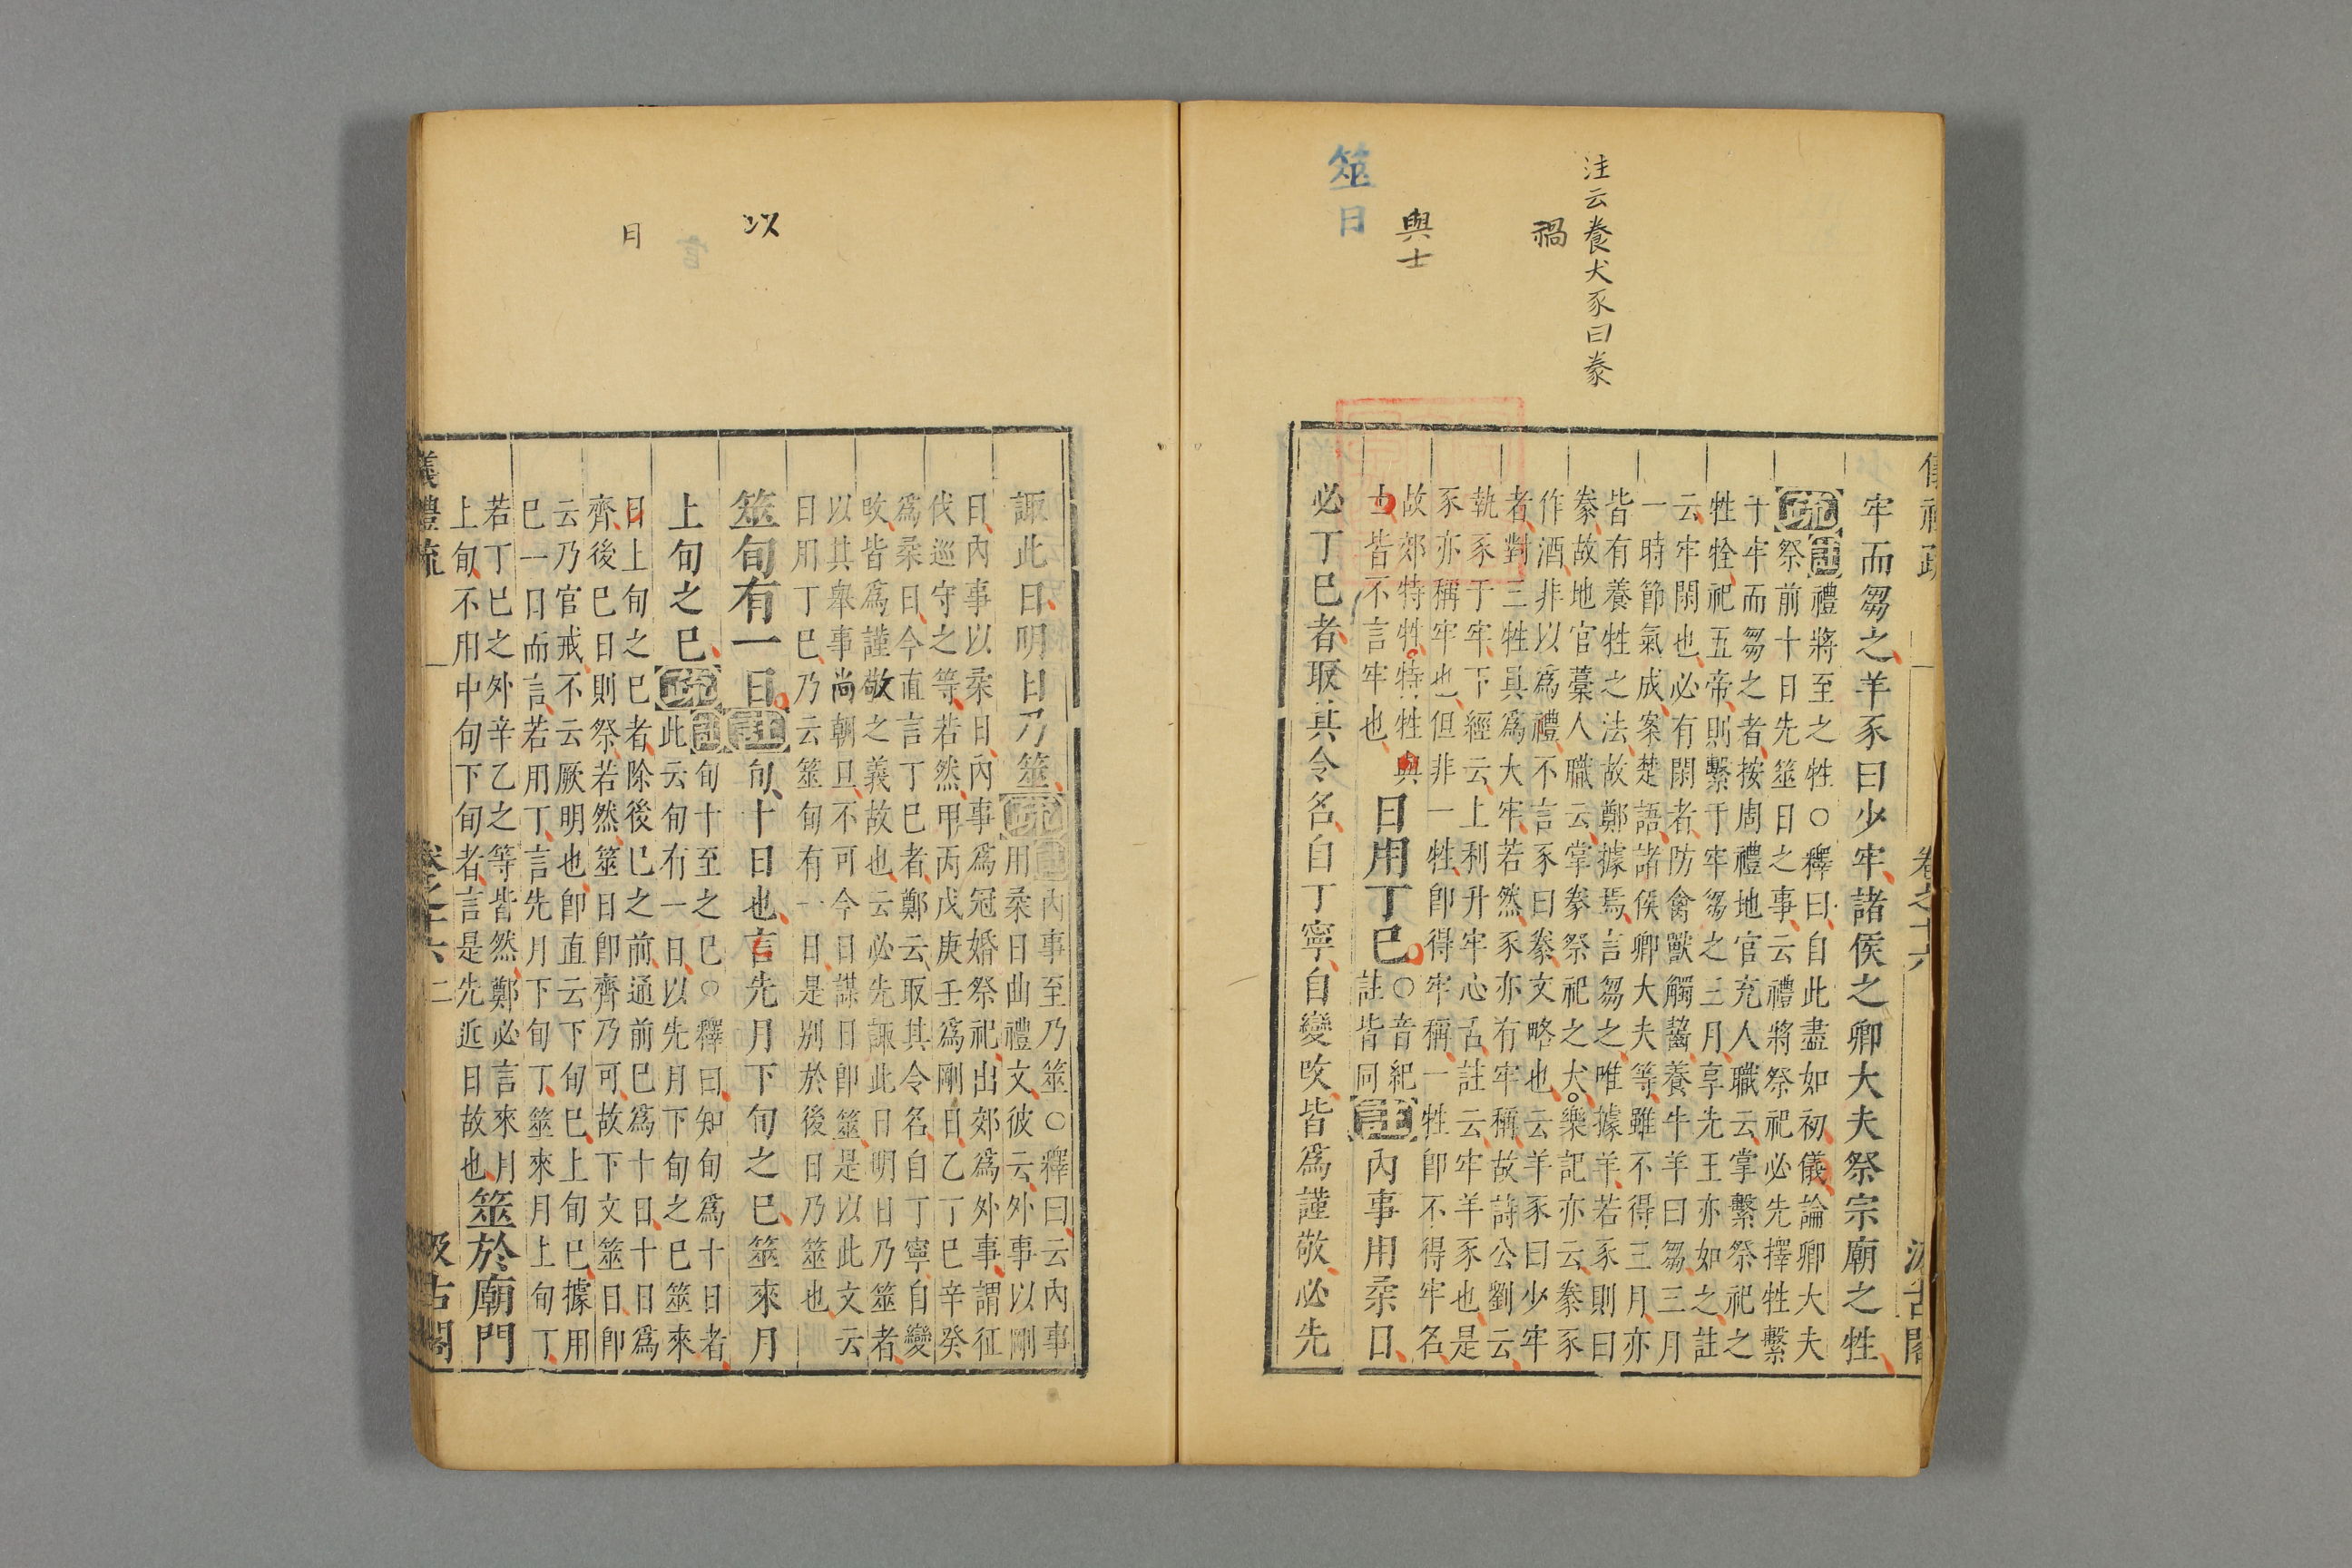 注云養犬豕曰豢
禍
與士
筮日
牢而芻之羊豕曰少牢諸侯之卿大夫祭宗廟之牲
疏
註禮將至之牲○釋曰自此盡如初儀論卿大夫
祭前十日先筮日之事云禮將祭祀必先擇牲繫
于牢而芻之者按周禮地官充人職云掌繫祭祀之
牲牷祀五帝則繫于牢芻之三月享先王亦如之註
云牢閑也必有閑者防禽獸觸齧養牛羊曰芻三月
一時節氣成案楚語諸侯卿大夫等雖不得三月亦
皆有養牲之法故鄭據焉言芻之唯據羊若豕則曰
豢故地官藁人職云掌豢祭祀之犬樂記亦云豢豕
作酒非以為禮不言豕曰豢文略也云羊豕曰少牢
者對三牲具為大牢若然豕亦有牢稱故詩公劉云
執豕于牢下經云上利升牢心舌註云牢羊豕也是
豕亦稱牢也但非一牲卽得牢稱一牲卽不得牢名
故郊特牲特牲與
士皆不言牢也
日用丁巳
○音紀
註皆同
註
內事用柔日
必丁巳者取其令名自丁寧自變改皆爲謹敬必先
以
月
諏此日明日乃筮
疏
註內事至乃筮○釋曰云內事
用柔日曲禮文彼云外事以剛
日內事以柔日內事爲冠婚祭祀出郊爲外事謂征
伐巡守之等若然甲丙戊庚壬爲剛日乙丁巳辛癸
爲柔日今直言丁巳者鄭云取其令名自丁寧自變
改皆爲謹敬之義故也云必先諏此日明日乃筮者
以其舉事尚朝旦不可今日謀日卽筮是以此文云
日用丁巳乃云筮旬有一日是別於後日乃筮也
筮旬有一日
註
旬十日也言先月下旬之巳筮來月
上旬之巳
疏
註旬十至之巳○釋曰知旬爲十日者
此云旬有一日以先月下旬之巳筮來
日上旬之巳者除後巳之前通前巳爲十日十日爲
齊後巳日則祭若然筮日卽齊乃可故下文筮日卽
云乃官戒不云厥明也卽直云下旬巳上旬巳據用
巳一日而言若用丁言先月下旬丁筮來月上旬丁
若丁巳之外辛乙之等皆然鄭必言來月
上旬不用中旬下旬者言是先近日故也
筮於廟門
儀禮疏
卷之十六
二
汲古閣